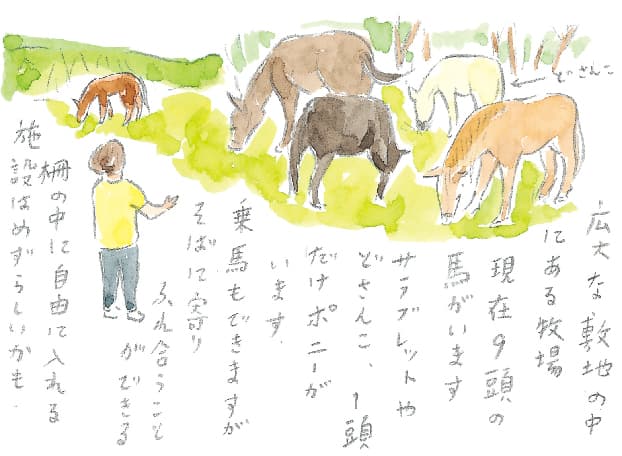 どさんこ
広大な敷地の中
にある牧場
現在9頭の
馬がいます
サラブレットや
どさんこ、1頭
だけポニーが
います。
乗馬もできますが
そばに寄り
ふれ合うこと
ができる
柵の中に自由に入れる
施設はめずらしいかも。